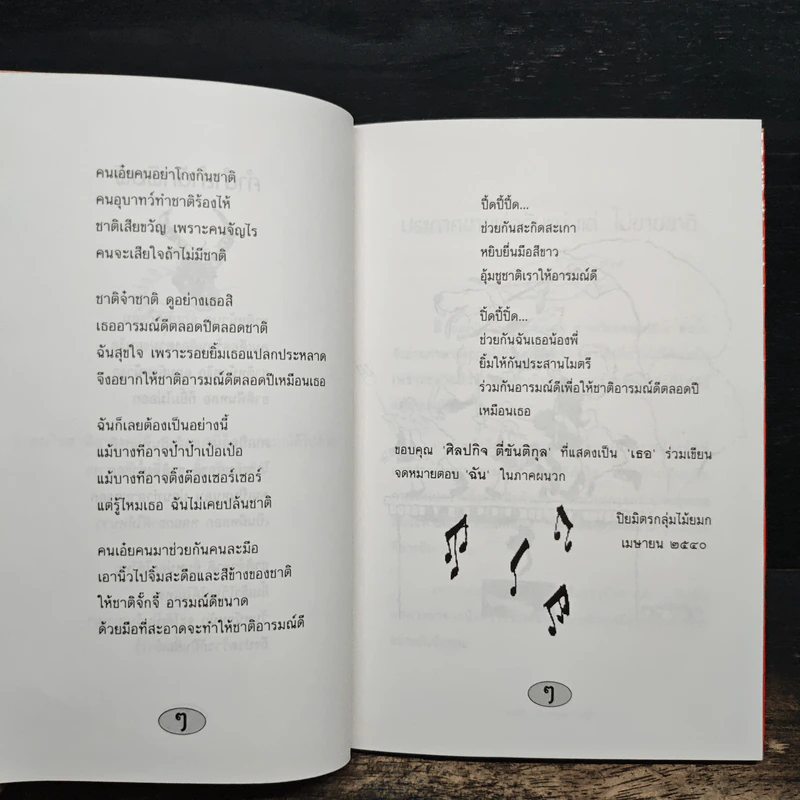 คนเอ๋ยคนอย่าโกงกินชาติ
คนอุบาทว์ทำชาติร้องไห้
ชาติเสียขวัญ เพราะคนจัญไร
คนจะเสียใจถ้าไม่มีชาติ
ชาติจ๋าชาติ ดูอย่างเธอสิ
เธออารมณ์ดีตลอดปีตลอดชาติ
ฉันสุขใจ เพราะรอยยิ้มเธอแปลกประหลาด
จึงอยากให้ชาติอารมณ์ดีตลอดปีเหมือนเธอ
ฉันก็เลยต้องเป็นอย่างนี้
แม้บางทีอาจป้ำป้ำเป๋อเป๋อ
แม้บางทีอาจติ๊งต๊องเซอร์เซอร์
แต่รู้ไหมเธอ ฉันไม่เคยปล้นชาติ
คนเอ๋ยคนมาช่วยกันคนละมือ
เอานิ้วไปจิ้มสะดือและสีข้างของชาติ
ให้ชาติจั๊กจี้ อารมณ์ดีขนาด
ด้วยมือที่สะอาดจะทำให้ชาติอารมณ์ดี
ๆ
ปี๊ดปี้ปี๊ด...
ช่วยกันสะกิดสะเกา
หยิบยื่นมือสีขาว
อุ้มชูชาติเราให้อารมณ์ดี
ปี๊ดปี้ปี๊ด...
ช่วยกันฉันเธอน้องพี่
ยิ้มให้กันประสานไมตรี
ร่วมกันอารมณ์ดีเพื่อให้ชาติอารมณ์ดีตลอดปี
เหมือนเธอ
ขอบคุณ 'ศิลปกิจ ตี่ขันติกุล' ที่แสดงเป็น 'เธอ' ร่วมเขียน
จดหมายตอบ 'ฉัน' ในภาคผนวก
ปิยมิตรกลุ่มไม้ยมก
เมษายน ๒๕๔๐
ๆ